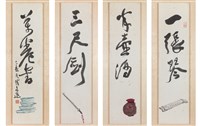 一張琴
半壺酒
三尺劍
萬卷書